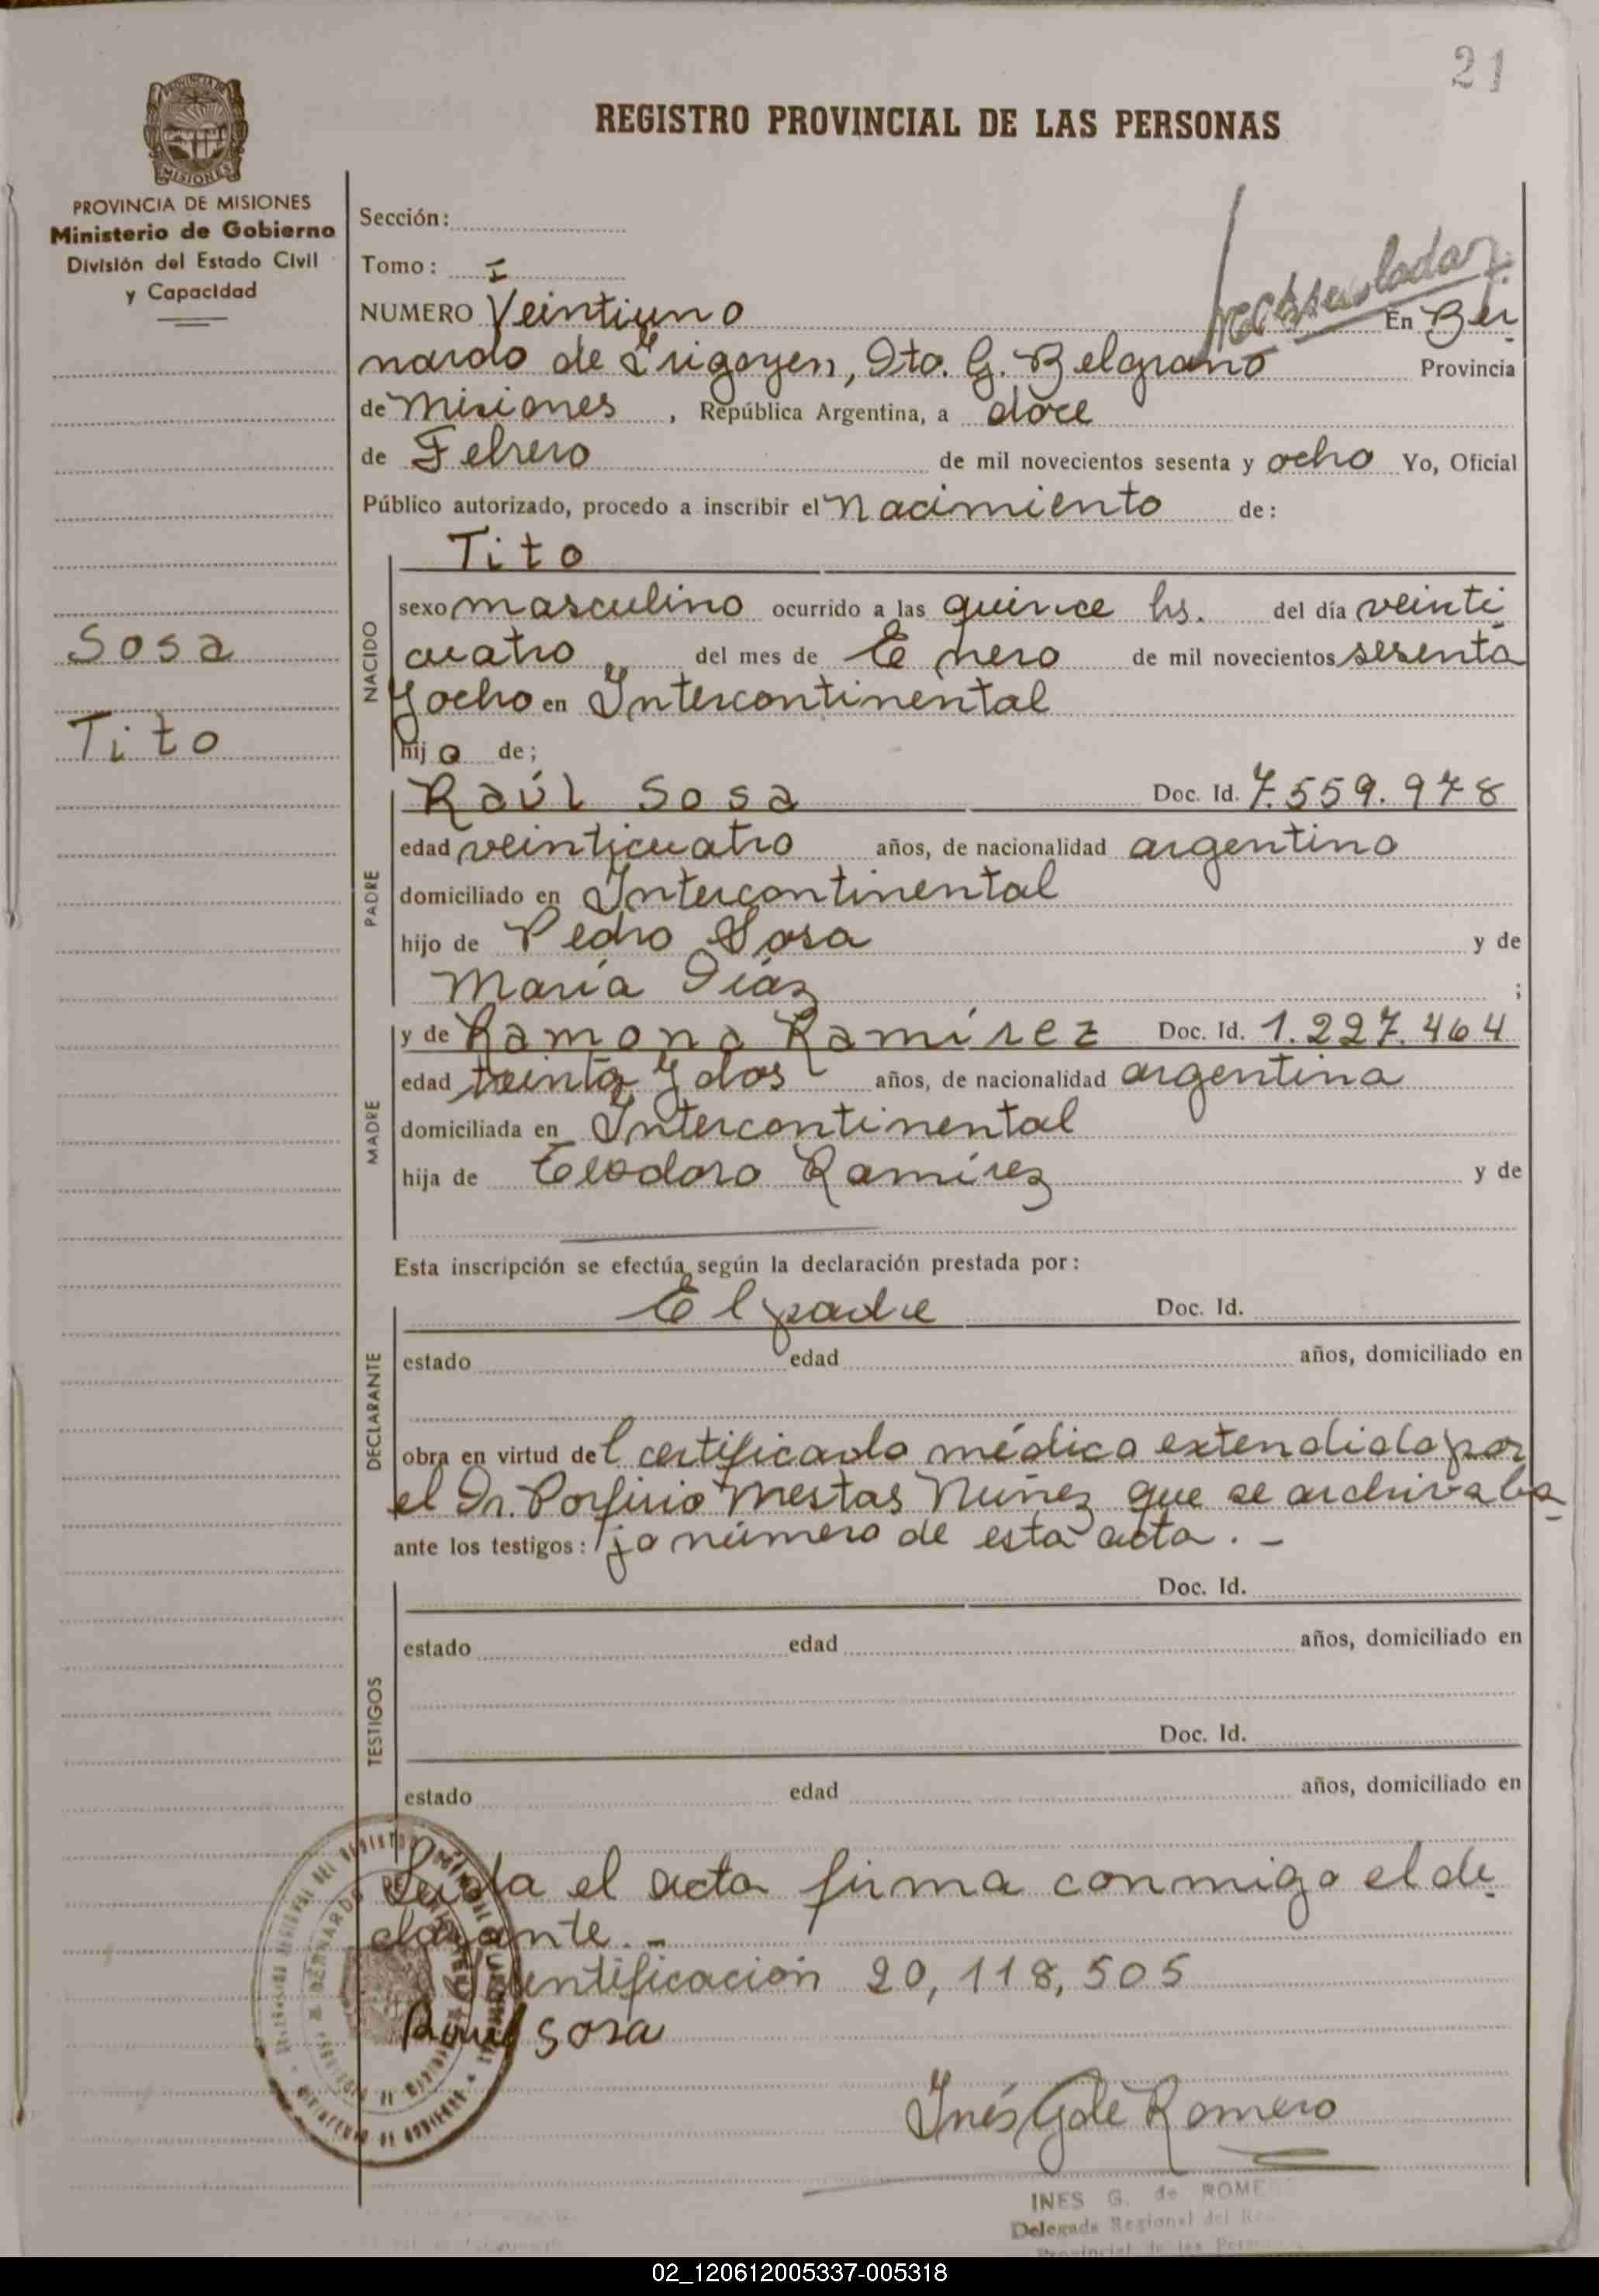 21
REGISTRO PROVINCIAL DE LAS PERSONAS
PROVINCIA DE
MISIONES
PROVINCIA DE MISIONES
Ministerio de Gobierno
División del Estado Civil
y Capacidad
Sosa
Tito
Sección:
Tomo: I
NUMERO Veintiuno En Ber
nardo de Irigoyen, Dto. G. Belgrano Provincia
de Misiones, República Argentina, a doce
de Febrero de mil novecientos sesenta y ocho Yo, Oficial
Público autorizado, procedo a inscribir el Nacimiento de:
Tito
NACIDO
sexo masculino ocurrido a las quince hs. del día veinti
cuatro del mes de Enero de mil novecientos sesenta
y ocho en Intercontinental
hijo de;
PADRE
Raúl Sosa Doc. Id. 7.559.978
edad veinticuatro años, de nacionalidad argentino
domiciliado en Intercontinental
hijo de Pedro Sosa y de
María Díaz ;
MADRE
y de Ramona Ramírez Doc. Id. 1.227.464
edad treinta y dos años, de nacionalidad argentina
domiciliada en Intercontinental
hija de Teodoro Ramírez y de
Esta inscripción se efectúa según la declaración prestada por:
DECLARANTE
El padre Doc. Id.
estado edad años, domiciliado en
obra en virtud del certificado médico extendido por
el Dr. Porfirio Mestas Nuñez que se archiva ba
ante los testigos: jo número de esta acta. -
TESTIGOS
Doc. Id.
estado edad años, domiciliado en
Doc. Id.
estado edad años, domiciliado en
Leída el acta firma conmigo el de
clarante. -
Identificación 20,118,505
Raul Sosa
Inés G de Romero
INES G. de ROME
Delegada Regional del
Provincial de las Per
02_120612005337-005318